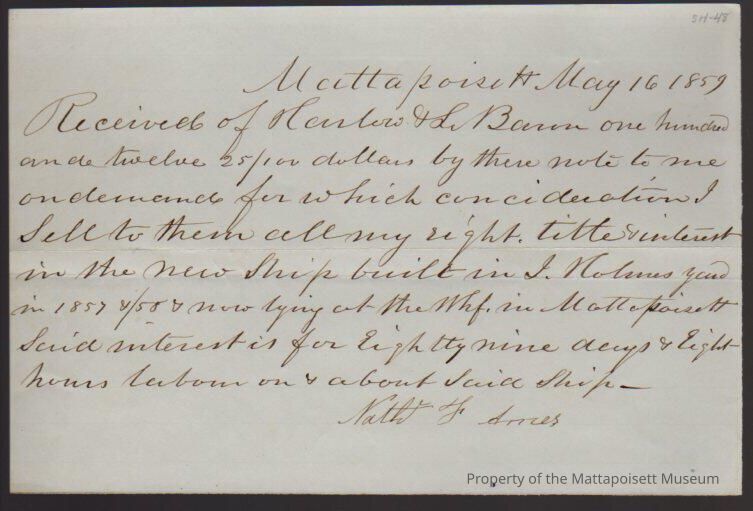 SH-48
Mattapoisett May 16 1859
Received of Harlow & LeBaron one hundred
and twelve 25/100 dollars by there note to me
on demand for which concideration I
Sell to them all my right. title & interest
in the new Ship built in J. Holmes yard
in 1857 &/58 & now lying at the Whf. in Mattapoisett
Said interest is for Eightty nine days & Eight
hours labour on & about Said Ship—
Nathl F Ames
Property of the Mattapoisett Museum